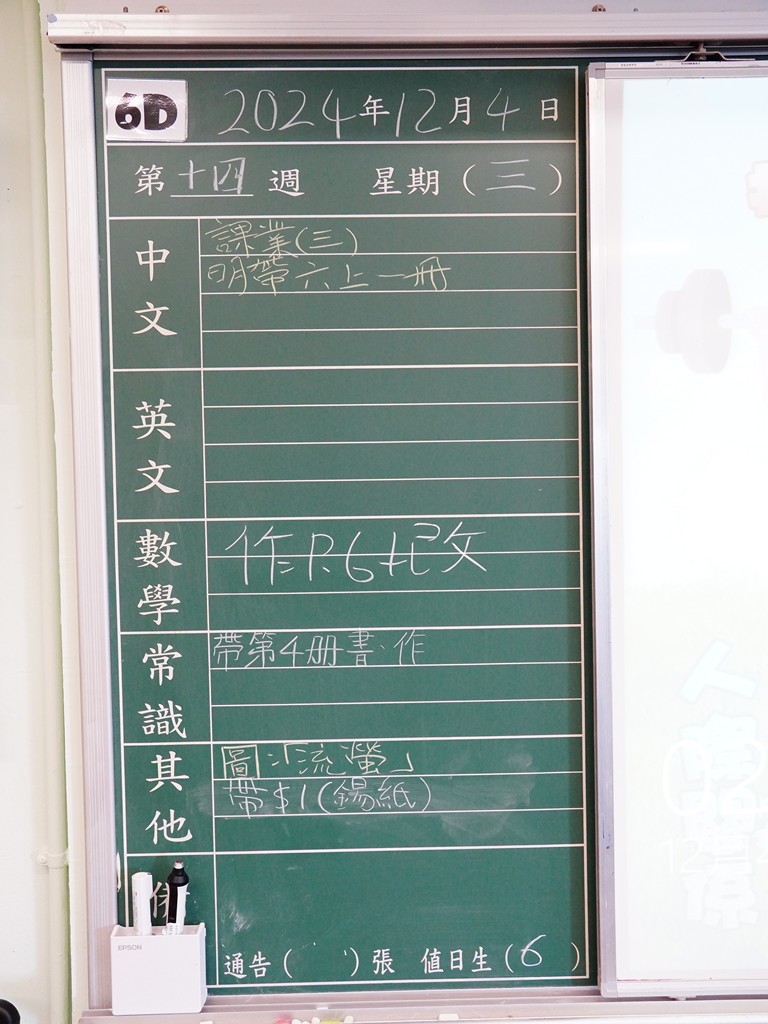 6D 2024年12月4日
第十四週 星期（三）
中文
課業(三)
明帶六上一冊
英文
數學
作P.6改
常識
帶第4册書、作
其他
圖:「流螢」
帶$1(錫紙)
EPSON
通告( )張 值日生(6)